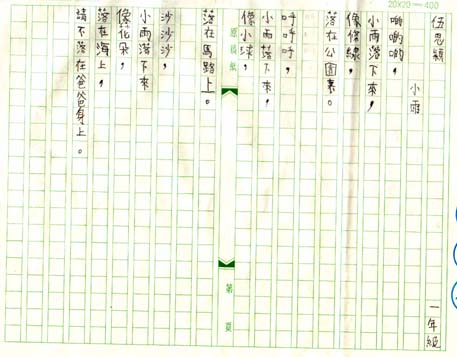 20X20=400
伍思穎 一年級
小雨
啲啲啲，
小雨落下來，
像條線，
落在公園裏。
呼呼呼，
小雨落下來，
像小球，
原稿紙
第 頁
落在馬路上。
沙沙沙，
小雨落下來
像花朵，
落在海上，
請不落在爸爸身上。